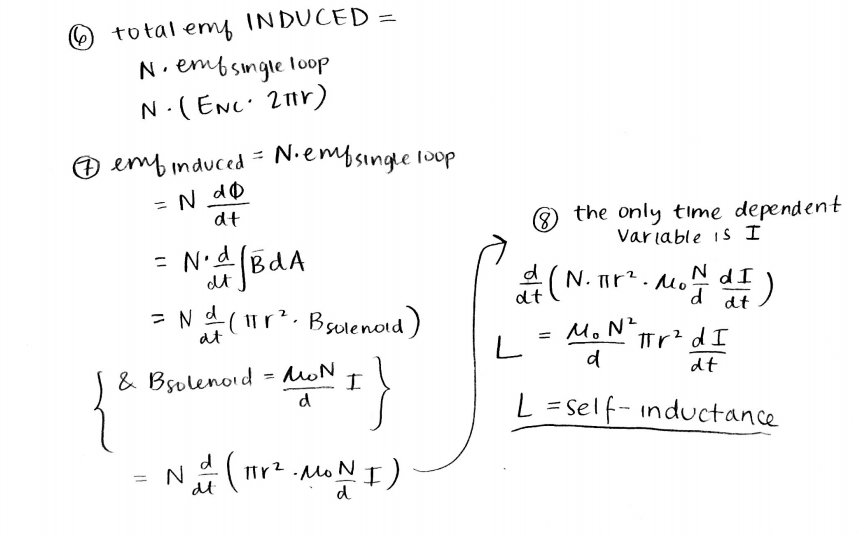 ⑥ total emf INDUCED =
N · emf single loop
N · (E_NC · 2πr)
⑦ emf induced = N·emf single loop
= N dΦ/dt
= N · d/dt ∫ B̄ dA
= N d/dt (πr² · B_solenoid)
{ & B_solenoid = μ₀N/d I }
= N d/dt (πr² · μ₀ N/d I)
⑧ the only time dependent
variable is I
d/dt (N · πr² · μ₀ N/d dI/dt)
L = μ₀N²/d πr² dI/dt
L = self-inductance